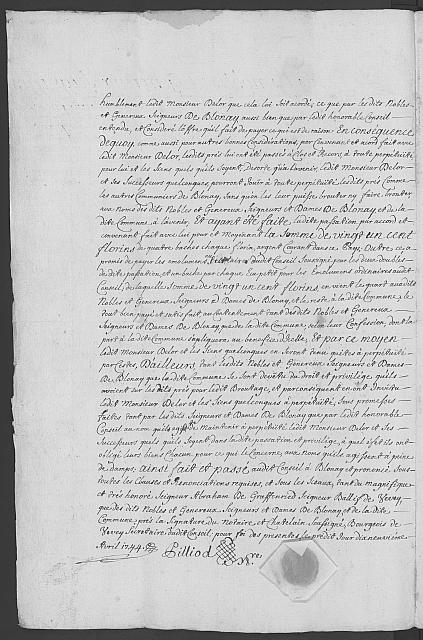 humblement ledit Monsieur Delor que cela lui soit acordé, ce que par les dits Nobles
et Genereux Seigneurs De Blonay aussi bien que par ledit honorable Conseil
entendu, et Consideré l'offre qu'il fait de payer ce qui est de raison En consequence
dequoy, comme aussi pour autres bonnes Considérations, par Convenant et acord fait avec
ledit Monsieur Delor, lesdits prés lui ont été passés à Clos et Record, à toute perpetuité
pour lui et les Siens quels qu'ils soyent, desorte qu'à l'avenir, ledit Monsieur Delor
et ses Successeurs quelconques pourront Jouir à toute perpetuité lesdits prés comme
les autres Communiers de Blonay, sans qu'on les leur puisse brouter ny faire brouter,
aux Noms des dits Nobles et Genereux Seigneurs et Dames De Blonay et de la dite
Commune à l'avenir. Et ayant été faite, la dite passation, par acord et
convenant fait avec lui pour et Moyenant la somme de vingt un cent
florins de quatre baches chaque florin, argent Courant dans ce Pays; Outre ce, a
promis de payer les emolumens audit Conseil Soussigné pour les deux doubles
de dite passation, et un bache par chaque en petit pour les Emolumens ordinaires audit
Conseil, de laquelle somme de vingt un cent florins, en vient le quart aux dits
Nobles et Genereux Seigneurs et Dames de Blonay, et le reste à la dite Commune, le
tout bien payé et satisfait au Contentement tant des dits Nobles et Genereux
Seigneurs et Dames De Blonay que de la dite Commune, selon leur Confession, dont la
part à la dite Commune s'apliquera au benefice d'icelle, Et par ce moyen
ledit Monsieur Delor et les Siens quelconques en seront tenus quittes à perpetuité
par Cestes, D'ailleurs, tant lesdits Nobles et Genereux Seigneurs et Dames
De Blonay que la dite Commune se sont devetus du droit et privilege qu'ils
avoient sur les dits prés pour ledit Broutage, et par consequent en ont Investu
ledit Monsieur Delor et les Siens quelconques à perpetuité, sous promesses
faites tant par les dits Seigneurs et Dames De Blonay que par ledit honorable
Conseil au nom qu'ils agissent Maintenir à perpetuité ledit Monsieur Delor et ses
Successeurs quels qu'ils soyent dans la dite passation et privilege, à quel effet ils ont
obligé leurs biens Chacun pour ce qui le Concerne, aux noms qu'ils agissent à peine
de damps; ainsi fait et passé audit Conseil à Blonay et prononcé sous
toutes les Clauses et Renonciations requises, et sous les sceaux, tant du magnifique
et très honoré Seigneur Abraham De Graffenried Seigneur Ballif de Vevey,
que des dits Nobles et Genereux Seigneurs et Dames De Blonay et de la dite
Commune, près la Signature du Notaire, et Chatelain soussigné, Bourgeois de
Vevey Secretaire dudit Conseil; pour foi des presentes susdit Jour dixneuvieme
Avril 1744.
Pilliod Nre.